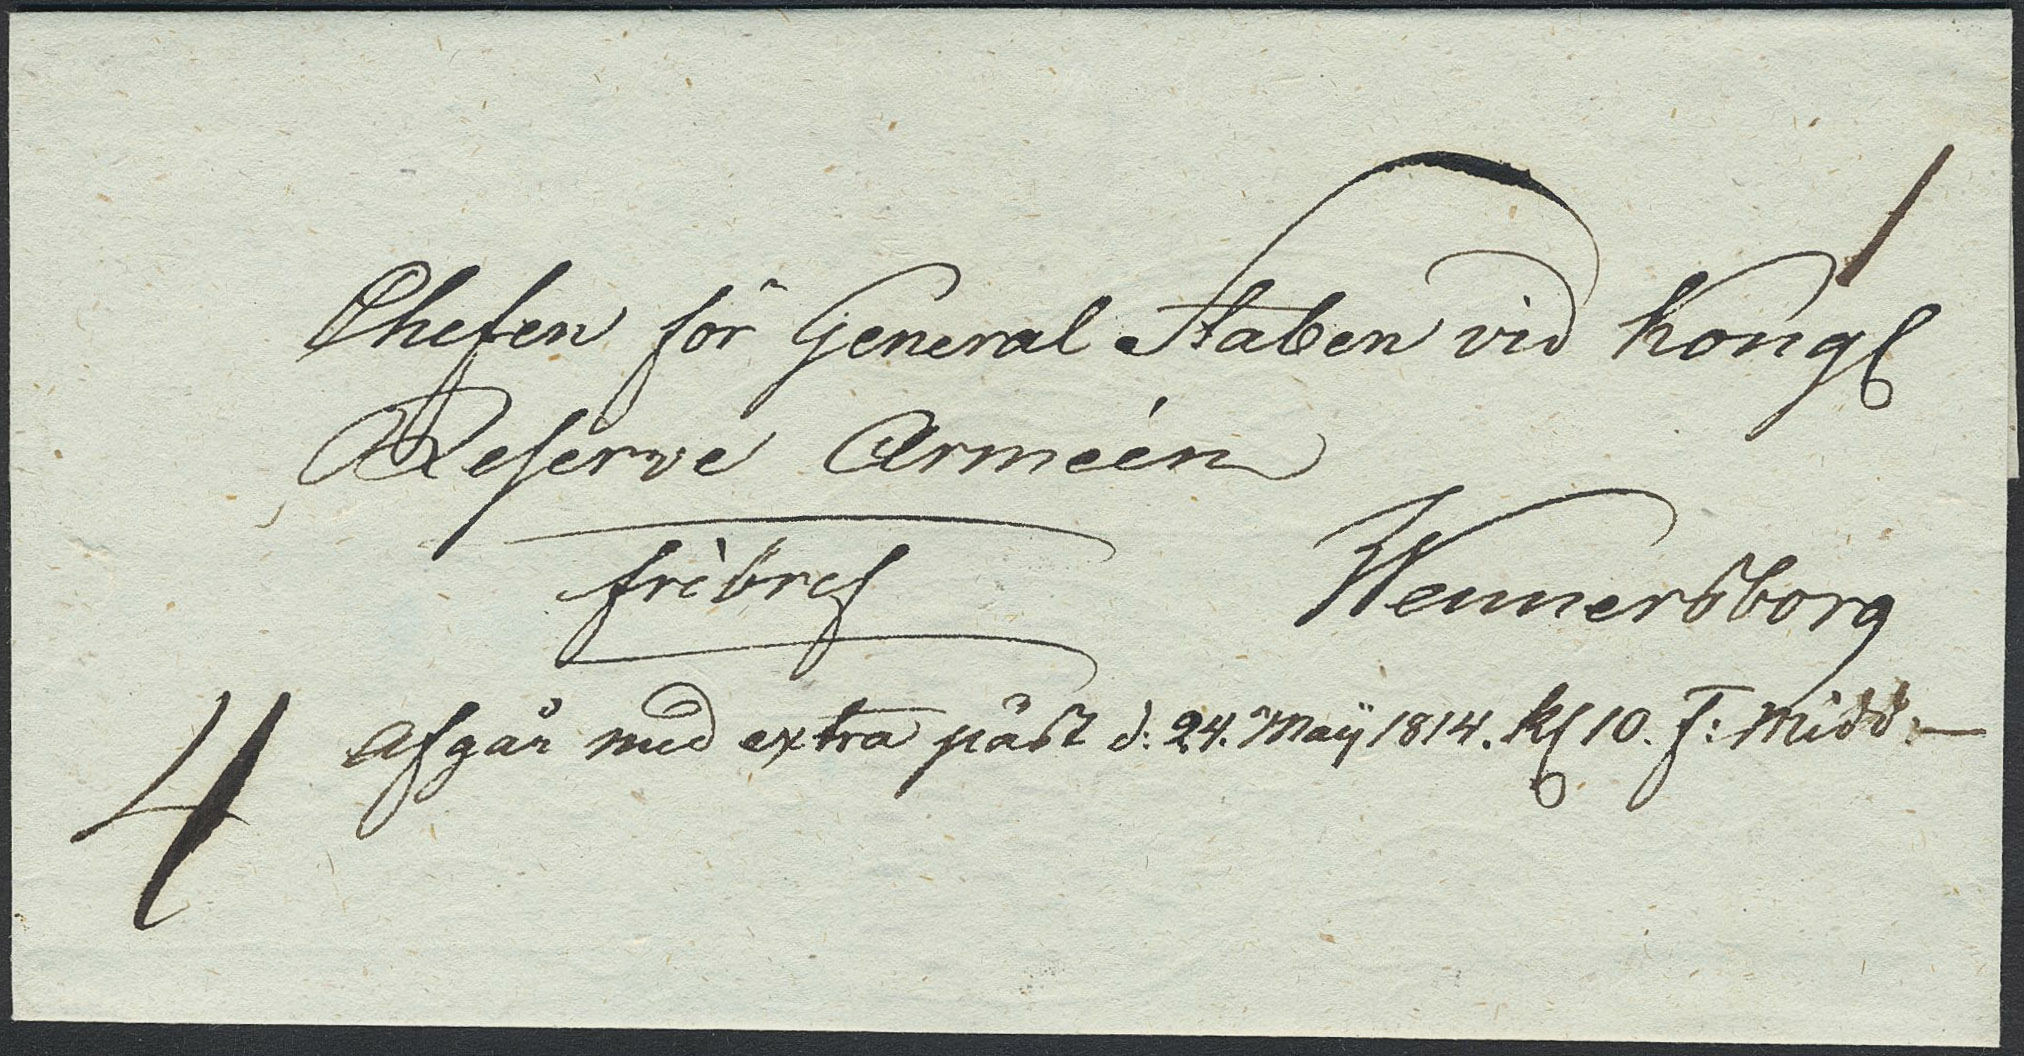 Chefen för General Staben vid Kongl
Reserve Armeén
fribref
Wennersborg
4
Afgår med extra påst d: 24. Maÿ 1814. Kl 10. f: Midd:—